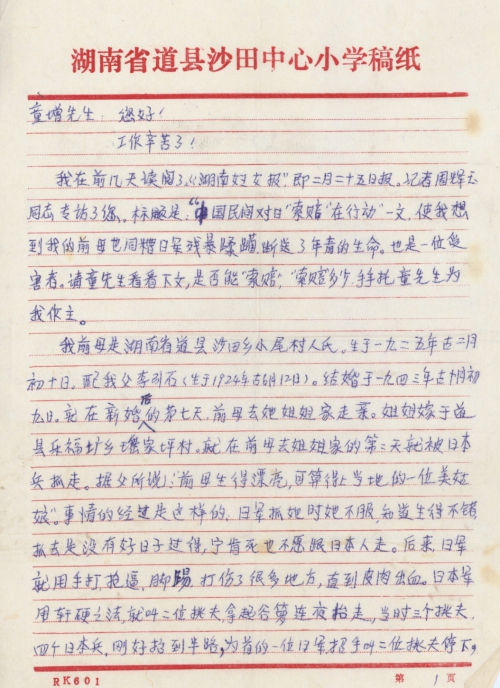 湖南省道县沙田中心小学稿纸
童增先生：您好！
工作辛苦了！
我在前几天读阅了《湖南妇女报》即二月二十五日报。记者周辉玉
同志专访了您。标题是："中国民间对日"索赔"在行动"一文，使我想
到我的前母也同遭日军残暴蹂躏断送了年青的生命。也是一位受
害者。请童先生看看下文，是否能"索赔"，"索赔"多少，拜托童先生为
我作主。
我前母是湖南省道县沙田乡小尾村人氏。生于一九二五年古二月
初十日。配我父李引石（生于1924年古6月12日）。结婚于一九四三年古十月初
九日。就在新婚后的第七天，前母去她姐姐家走菜。姐姐嫁于道
县乐福圹乡塘家坪村。就在前母去姐姐家的第二天就被日本
兵抓走。据父所说："前母生得漂亮，可算得上当地的一位美姑
娘"。事情的经过是这样的，日军抓她时她不服，知道生得不错
抓去是没有好日子过得，宁肯死也不愿跟日本人走。后来，日军
就用手打，抢逼，脚踢，打伤了很多地方，直到皮肉出血。日本军
用软硬之法，就叫二位挑夫，拿起谷箩连夜抬走，当时三个挑夫
四个日本兵，刚好抬到半路，为首的一位日军招手叫二位挑夫停下，
RK601
第 1 页